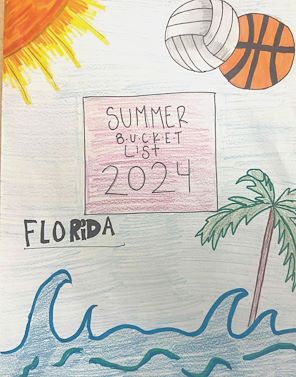 SUMMER
B.U.C.K.E.T
LIST
2024
FLORiDA